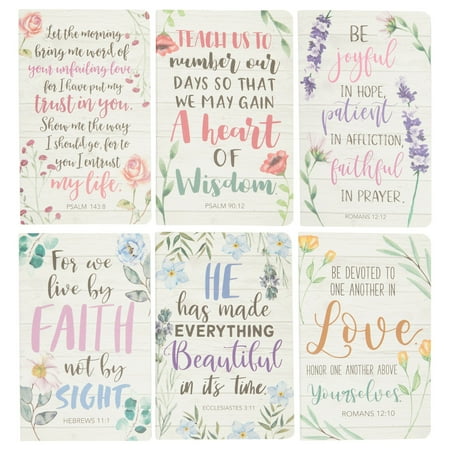 Let the morning
bring me word of
your unfailing love,
for I have put my
trust in you.
Show me the way
I should go, for to
you I entrust
my life.
PSALM 143:8
TEACH US TO
number our
DAYS SO THAT
WE MAY GAIN
A heart
OF
Wisdom.
PSALM 90:12
BE
joyful
IN HOPE,
patient
IN AFFLICTION,
faithful
IN PRAYER.
ROMANS 12:12
For we
live by
FAITH
not by
SIGHT.
HEBREWS 11:1
HE
has made
EVERYTHING
Beautiful
in its time.
ECCLESIASTES 3:11
BE DEVOTED TO
ONE ANOTHER IN
Love.
HONOR ONE ANOTHER ABOVE
Yourselves.
ROMANS 12:10